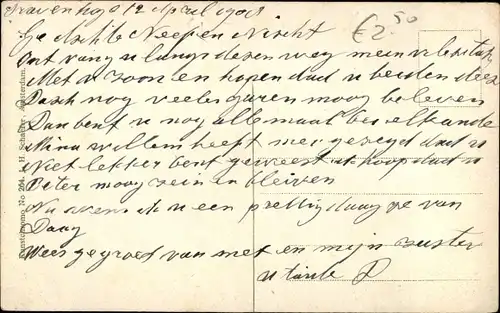 Gravenhage 12 April 1908
€2.50
Geachte Neef en Nicht
ont vang u langs dezen weg mein
Met u zoon en hopen dad u beiden deez
Dach nog veele jaren moog beleven
Dan bent u nog allemaal bei elkande
Mina willem heeft mei gezegd dad u
Niet lekker bent geweest ik hoop dad u
Beter moog zein en bleiven
Nu wens ik u een prettig daag ze van
Daag
Wees gegroed van met en mijn zuster
u tante D
Kunstchromo No 204. H. Schaefer, Amsterdam.